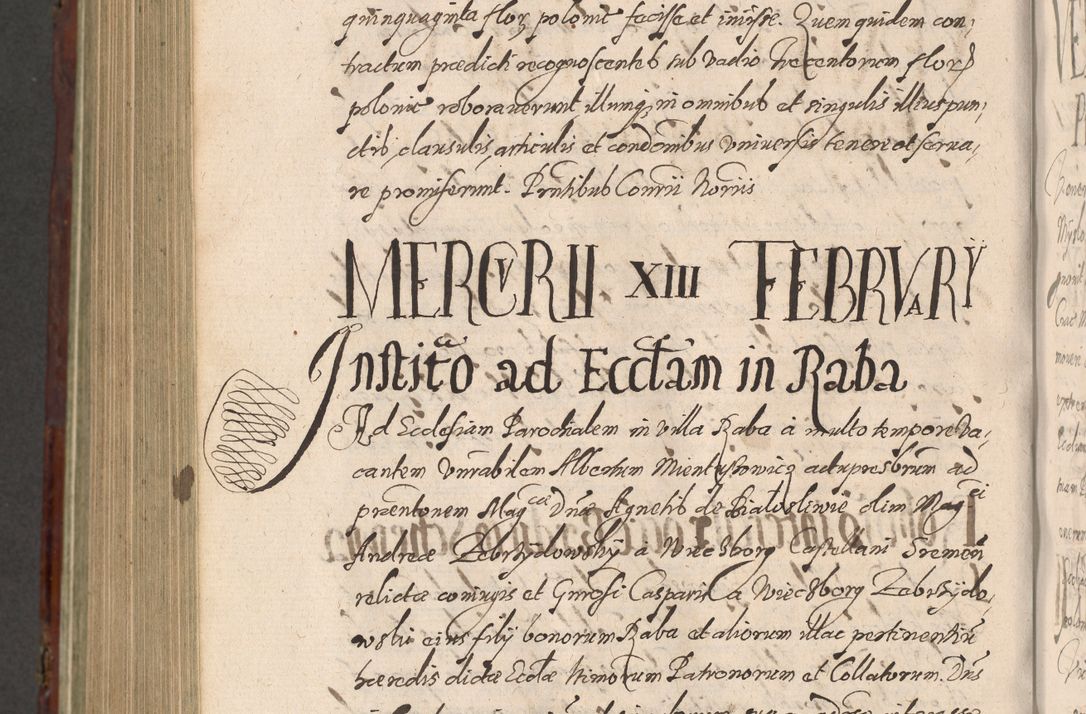 quinquaginta flor polonic fecisse et inijsse. Quem quidem con,
tractum prædicti recognoscentes sub vadio trecentorum flor
polonic roboraverunt illumq, in omnibus et singulis illius pun,
ctis, clausulis, articulis et condonibus universis tenere et serva,
re promiserunt. Prntibus
MERCVRII XIII FEBRVARY
Instito ad Ecctam in Raba
Ad Ecclesiam Parochialem in villa Raba à multo tempore Va,
cantem Vnrabilem Albertum actu presbrum ad
præntonem Mag cæ Dnæ Agnetis de Białosliwie olim Mag ci
Andreæ Zebrzydowsky a Wiecsborg Castellani Sremen
relictæ coniugis et Gnrosi Caspari a Wiecsborg Zebrzydo,
wski eius filij bonorum Raba et aliorum illac pertinentium
hæredis dictæ Ecctæ Patronorum et Collatorum. Dns